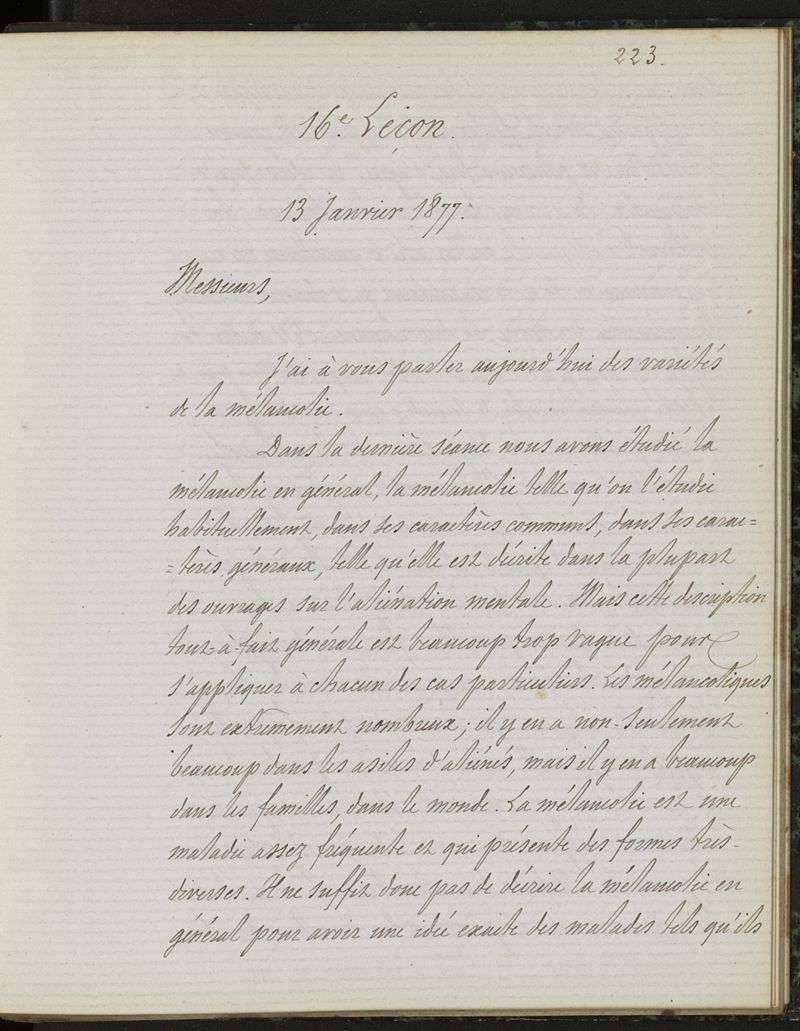 223.
16e. Leçon.
13 Janvier 1877.
Messieurs,
J'ai à vous parler aujourd'hui des variétés
de la mélancolie.
Dans la dernière séance nous avons étudié la
mélancolie en général, la mélancolie telle qu'on l'étudie
habituellement, dans ses caractères communs, dans ses carac=
=tères généraux, telle qu'elle est décrite dans la plupart
des ouvrages sur l'aliénation mentale. Mais cette description
tout-à-fait générale est beaucoup trop vague pour
s'appliquer à chacun des cas particuliers. Les mélancoliques
sont extrêmement nombreux; il y en a non-seulement
beaucoup dans les asiles d'aliénés, mais il y en a beaucoup
dans les familles, dans le monde. La mélancolie est une
maladie assez fréquente et qui présente des formes très-
diverses. Il ne suffit donc pas de décrire la mélancolie en
général pour avoir une idée exacte des malades tels qu'ils